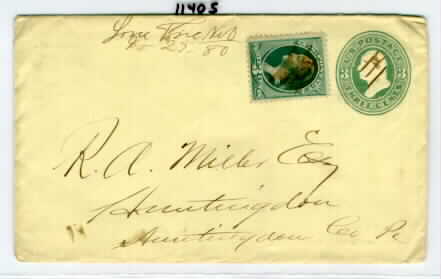 11405
Lone Tree Neb
23 - 80
U.S. POSTAGE
THREE CENTS
R. A. Miller Esq
Huntingdon
Huntingdon Co Pa